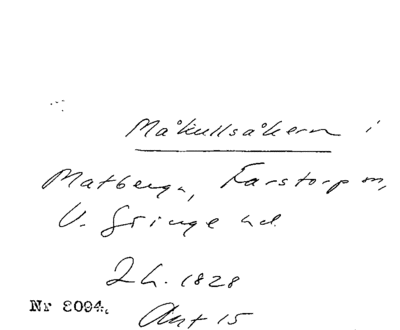 Måkullsåkern i
Matberga, Farstorp sn,
V. Göinge hd
Lh. 1828
Nr 8094.
Akt 15